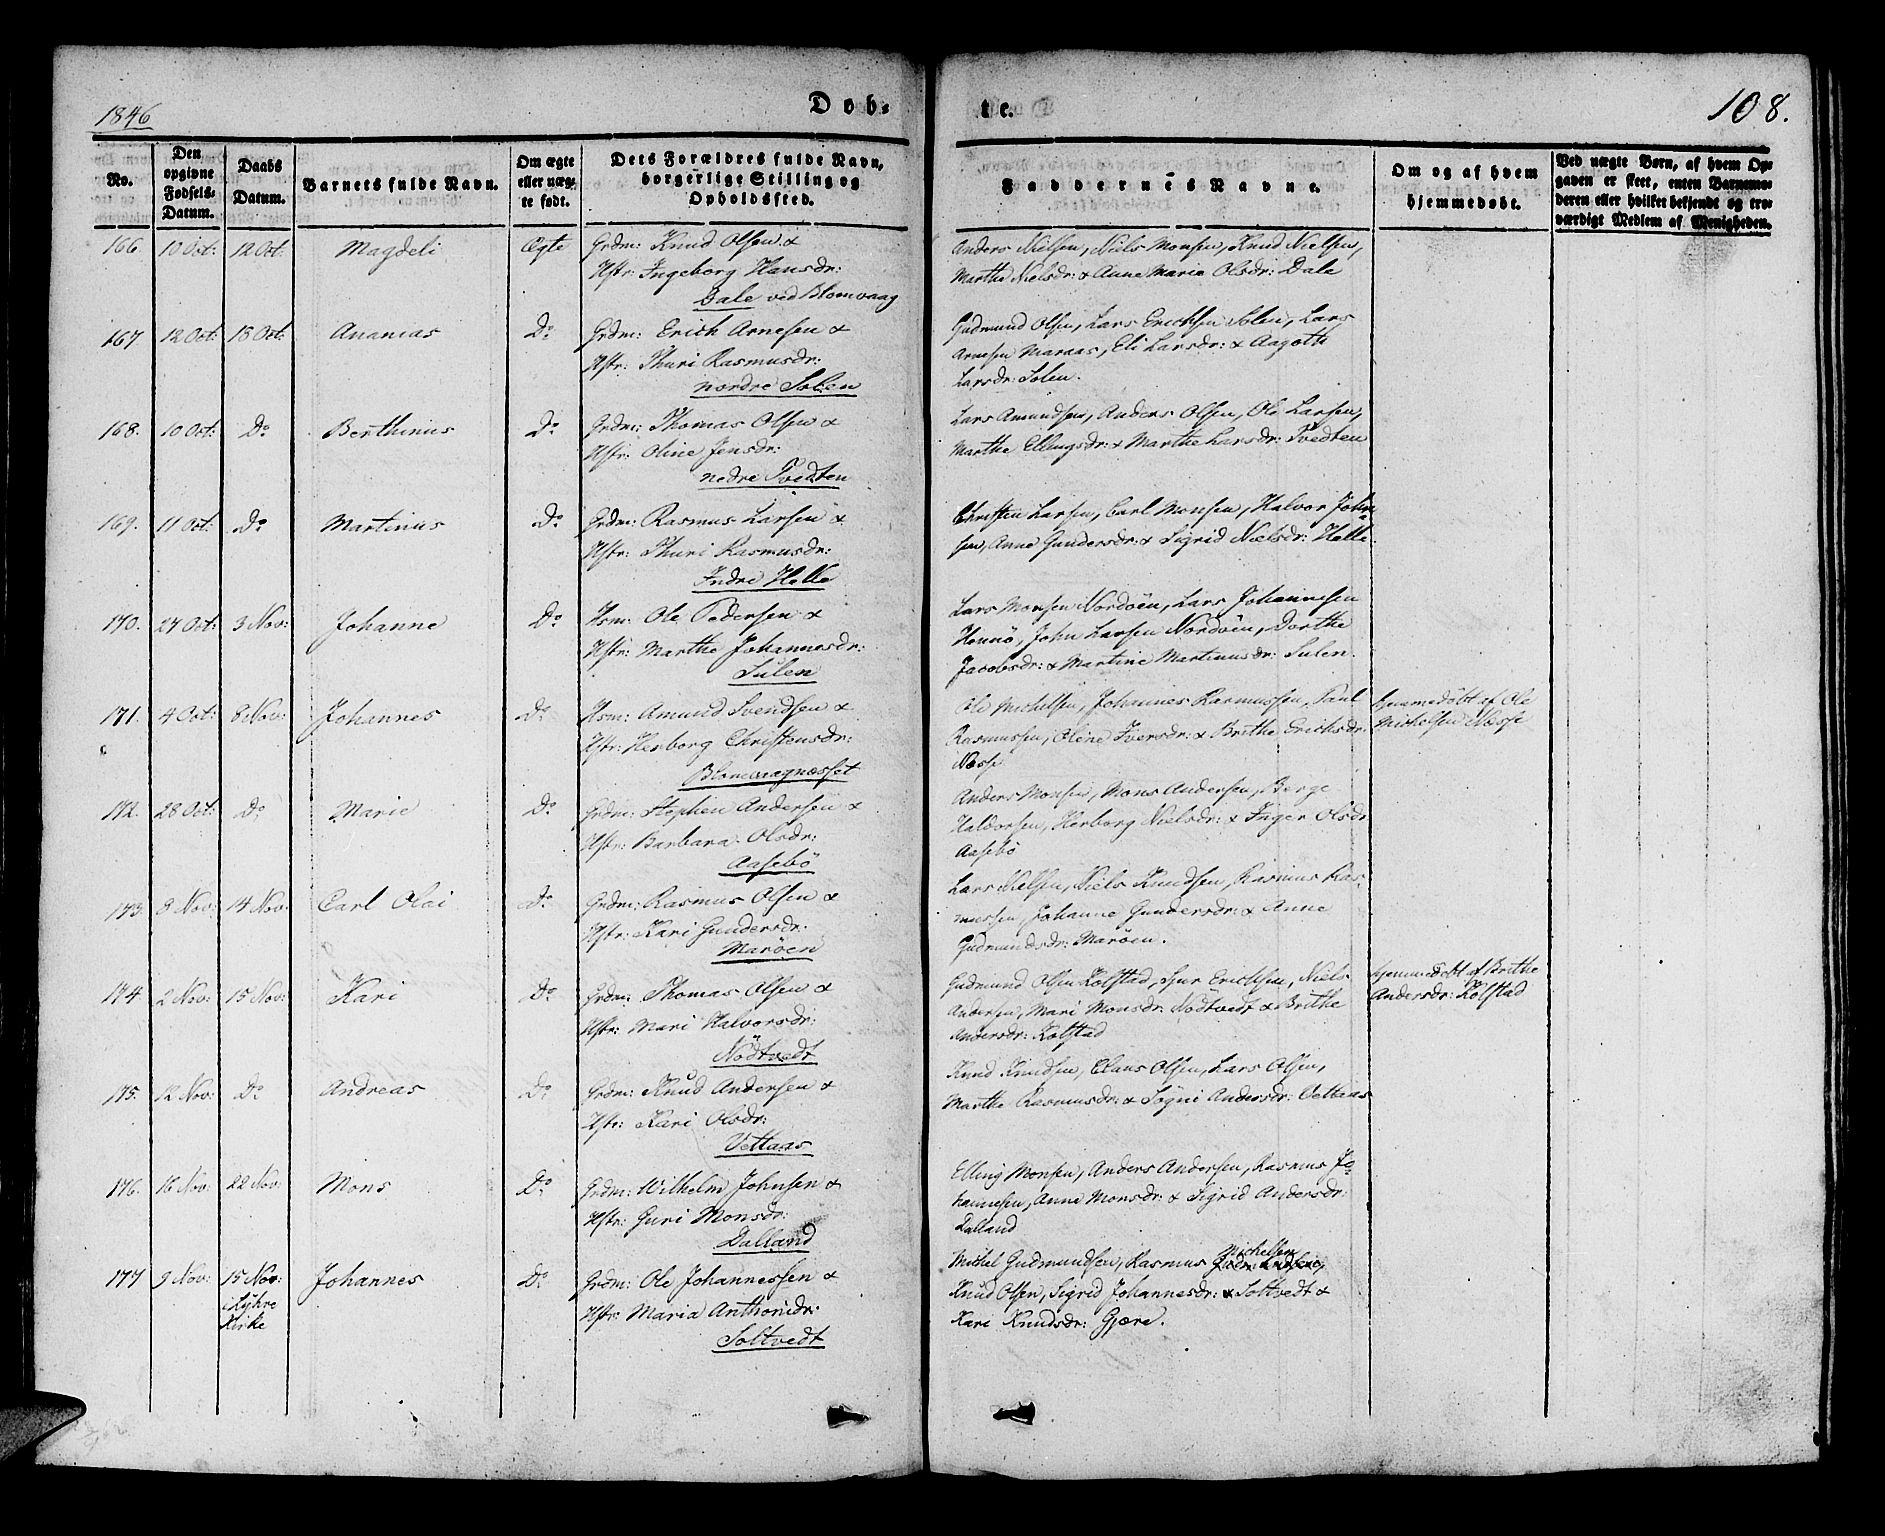 1846
Døb-
te.
108.
No.
Den opgivne Fødsels-Datum.
Daabs Datum.
Barnets fulde Navn.
Om ægte eller uæg-te født.
Dets Forældres fulde Navn, borgerlige Stilling og Opholdssted.
Faddernes Navne.
Om og af hvem hjemmedøbt.
Ved uægte Børn, af hvem Op-
gaven er skeet, enten Barnemo-
deren eller hvilket bekjendt og tro-
værdigt Medlem af Menigheden.
166. 10 Oct: 12 Oct: Magdeli Ægte Grdm: Knud Olsen &
Hstr: Ingeborg Hansdr:
Dale ved Blomvaag
Anders Nielsen, Niels Monsen, Knud Nielsen,
Marthe Nielsdr: & Anne Maria Olsdr: Dale
167 12 Oct: 18 Oct: Ananias Do Grdm: Erich Arnesen &
Hstr: Thuri Rasmusdr:
nordre Solen
Gudmund Olsen, Lars Erichsen Solen, Lars
Arnesen Maraas, Eli Larsdr: & Aagoth
Larsdr: Solen.
168. 10 Oct: Do Berthinus Do Grdm: Thomas Olsen &
Hstr: Oline Jensdr:
nedre Tvedten
Lars Amundsen, Anders Olsen, Ole Larsen,
Marthe Ellingsdr: & Marthe Larsdr: Tvedten
169. 11 Oct: Do Martinus Do Grdm: Rasmus Larsen &
Hstr: Thuri Rasmusdr:
Indre Helle
Christen Larsen, Carl Monsen, Halvor John-
sen, Anne Gundersdr: & Sigrid Nielsdr: Helle.
170. 27 Oct: 3 Nov: Johanne Do Hsm: Ole Pedersen &
Hstr: Marthe Johannesdr:
Sulen
Lars Monsen Nordöen, Lars Johannesen
Hennö, John Larsen Nordöen, Dorthe
Jacobsdr: & Martine Martinusdr: Sulen.
171. 4 Oct: 8 Nov: Johannes Do Hsm: Amund Svendsen &
Hstr: Herborg Christensdr:
Blomvaagnæsset
Ole Michelsen, Johannes Rasmussen, Paul
Rasmussen, Oline Iversdr: & Brithe Erichsdr:
Næsse
hjemmedöbt af Ole
Michelsen Næsse
172. 28 Oct: Do Marie Do Grdm: Stephen Andersen &
Hstr: Barbara Olsdr:
Aasebö
Anders Monsen, Mons Andersen, Berge
Haldorsen, Herborg Nielsdr: & Inger Olsdr
Aasebö
173. 8 Nov: 14 Nov: Carl Olai Do Grdm: Rasmus Olsen &
Hstr: Kari Gundersdr.
Maröen
Lars Nielsen, Niels Knudsen, Rasmus Ras-
mussen, Johanne Gundersdr: & Anne
Gudmundsdr: Maröen.
174 2 Nov: 15 Nov: Kari Do Grdm: Thomas Olsen &
Hstr: Mari Halvorsdr:
Nödtvedt
Gudmund Olsen Kolstad, Sjur Erichsen, Niels
Andersen, Mari Monsdr: Nödtvedt & Brithe
Andersdr: Kolstad
hjemmedöbt af Brithe
Andersdr: Kolstad
175. 12 Nov: Do Andreas Do Grdm: Knud Andersen &
Hstr: Kari Olsdr:
Vettaas
Knud Knudsen, Claus Olsen, Lars Olsen,
Marthe Rasmusdr: & Sögni Andersdr: Vettaas
176. 16 Nov: 22 Nov: Mons Do Grdm: Wilhelm Johnsen &
Hstr: Guri Monsdr:
Dalland
Elling Monsen, Anders Andersen, Rasmus Jo-
hannesen, Anne Monsdr: & Sigrid Andersdr:
Dalland
177 9 Nov: 15 Nov: Johannes Do Grdm: Ole Johannessen &
i Kirke
Hstr: Maria Anthonidr:
Soltvedt
Michel Gudmundsen, Rasmus Michelsen
Knud Olsen, Sigrid Johannesdr: Soltvedt &
Kari Knudsdr: Gjære.